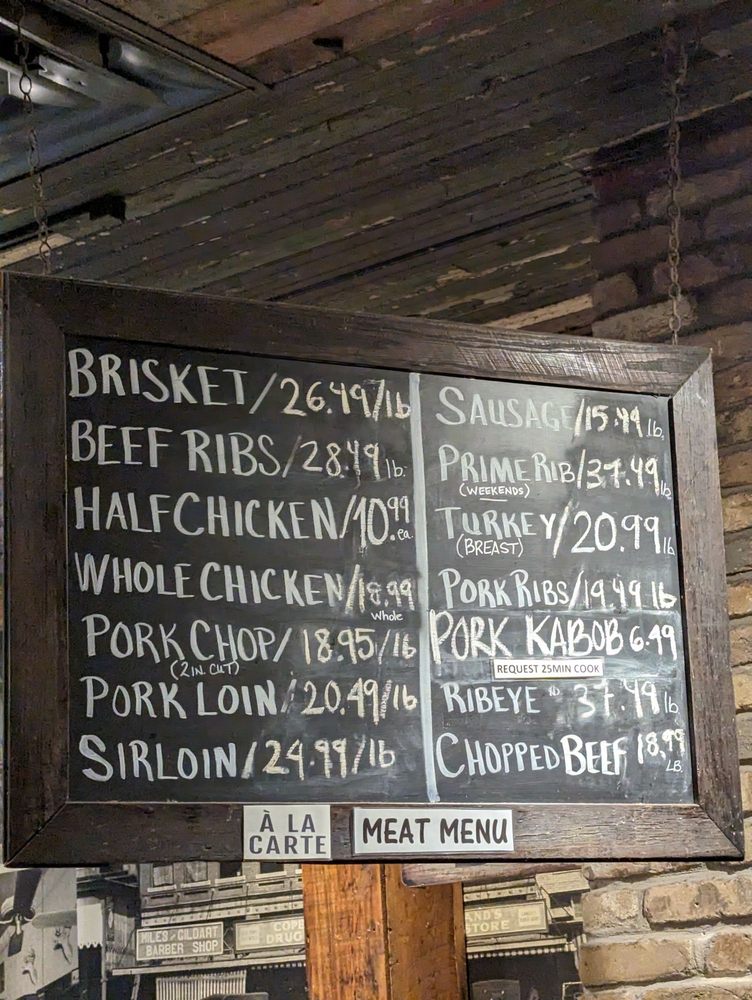 BRISKET/26.49/lb
BEEF RIBS/28.49 lb.
HALF CHICKEN/10.99 ea.
WHOLE CHICKEN/18.99
Whole
PORK CHOP/ 18.95/lb
(2 IN. CUT)
PORK LOIN/20.49/lb
SIRLOIN/24.99/lb
SAUSAGE/15.49 lb.
PRIME RIB/37.49 lb
(WEEKENDS)
TURKEY/20.99 lb
(BREAST)
PORK RIBS/19.49 lb
PORK KABOB 6.49
REQUEST 25MIN COOK
RIBEYE 37.49 lb
CHOPPED BEEF 18.99
LB.
À LA
CARTE
MEAT MENU
MILES-GILDART
BARBER SHOP
DRUG
STORE